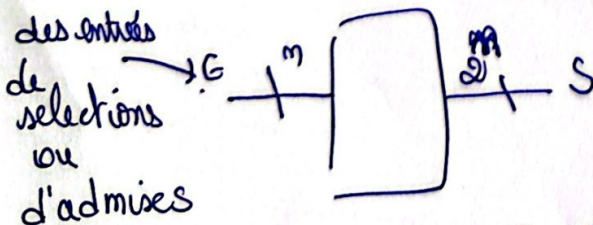 des entrées
de
selections
ou
d'admises
E
n
2
S